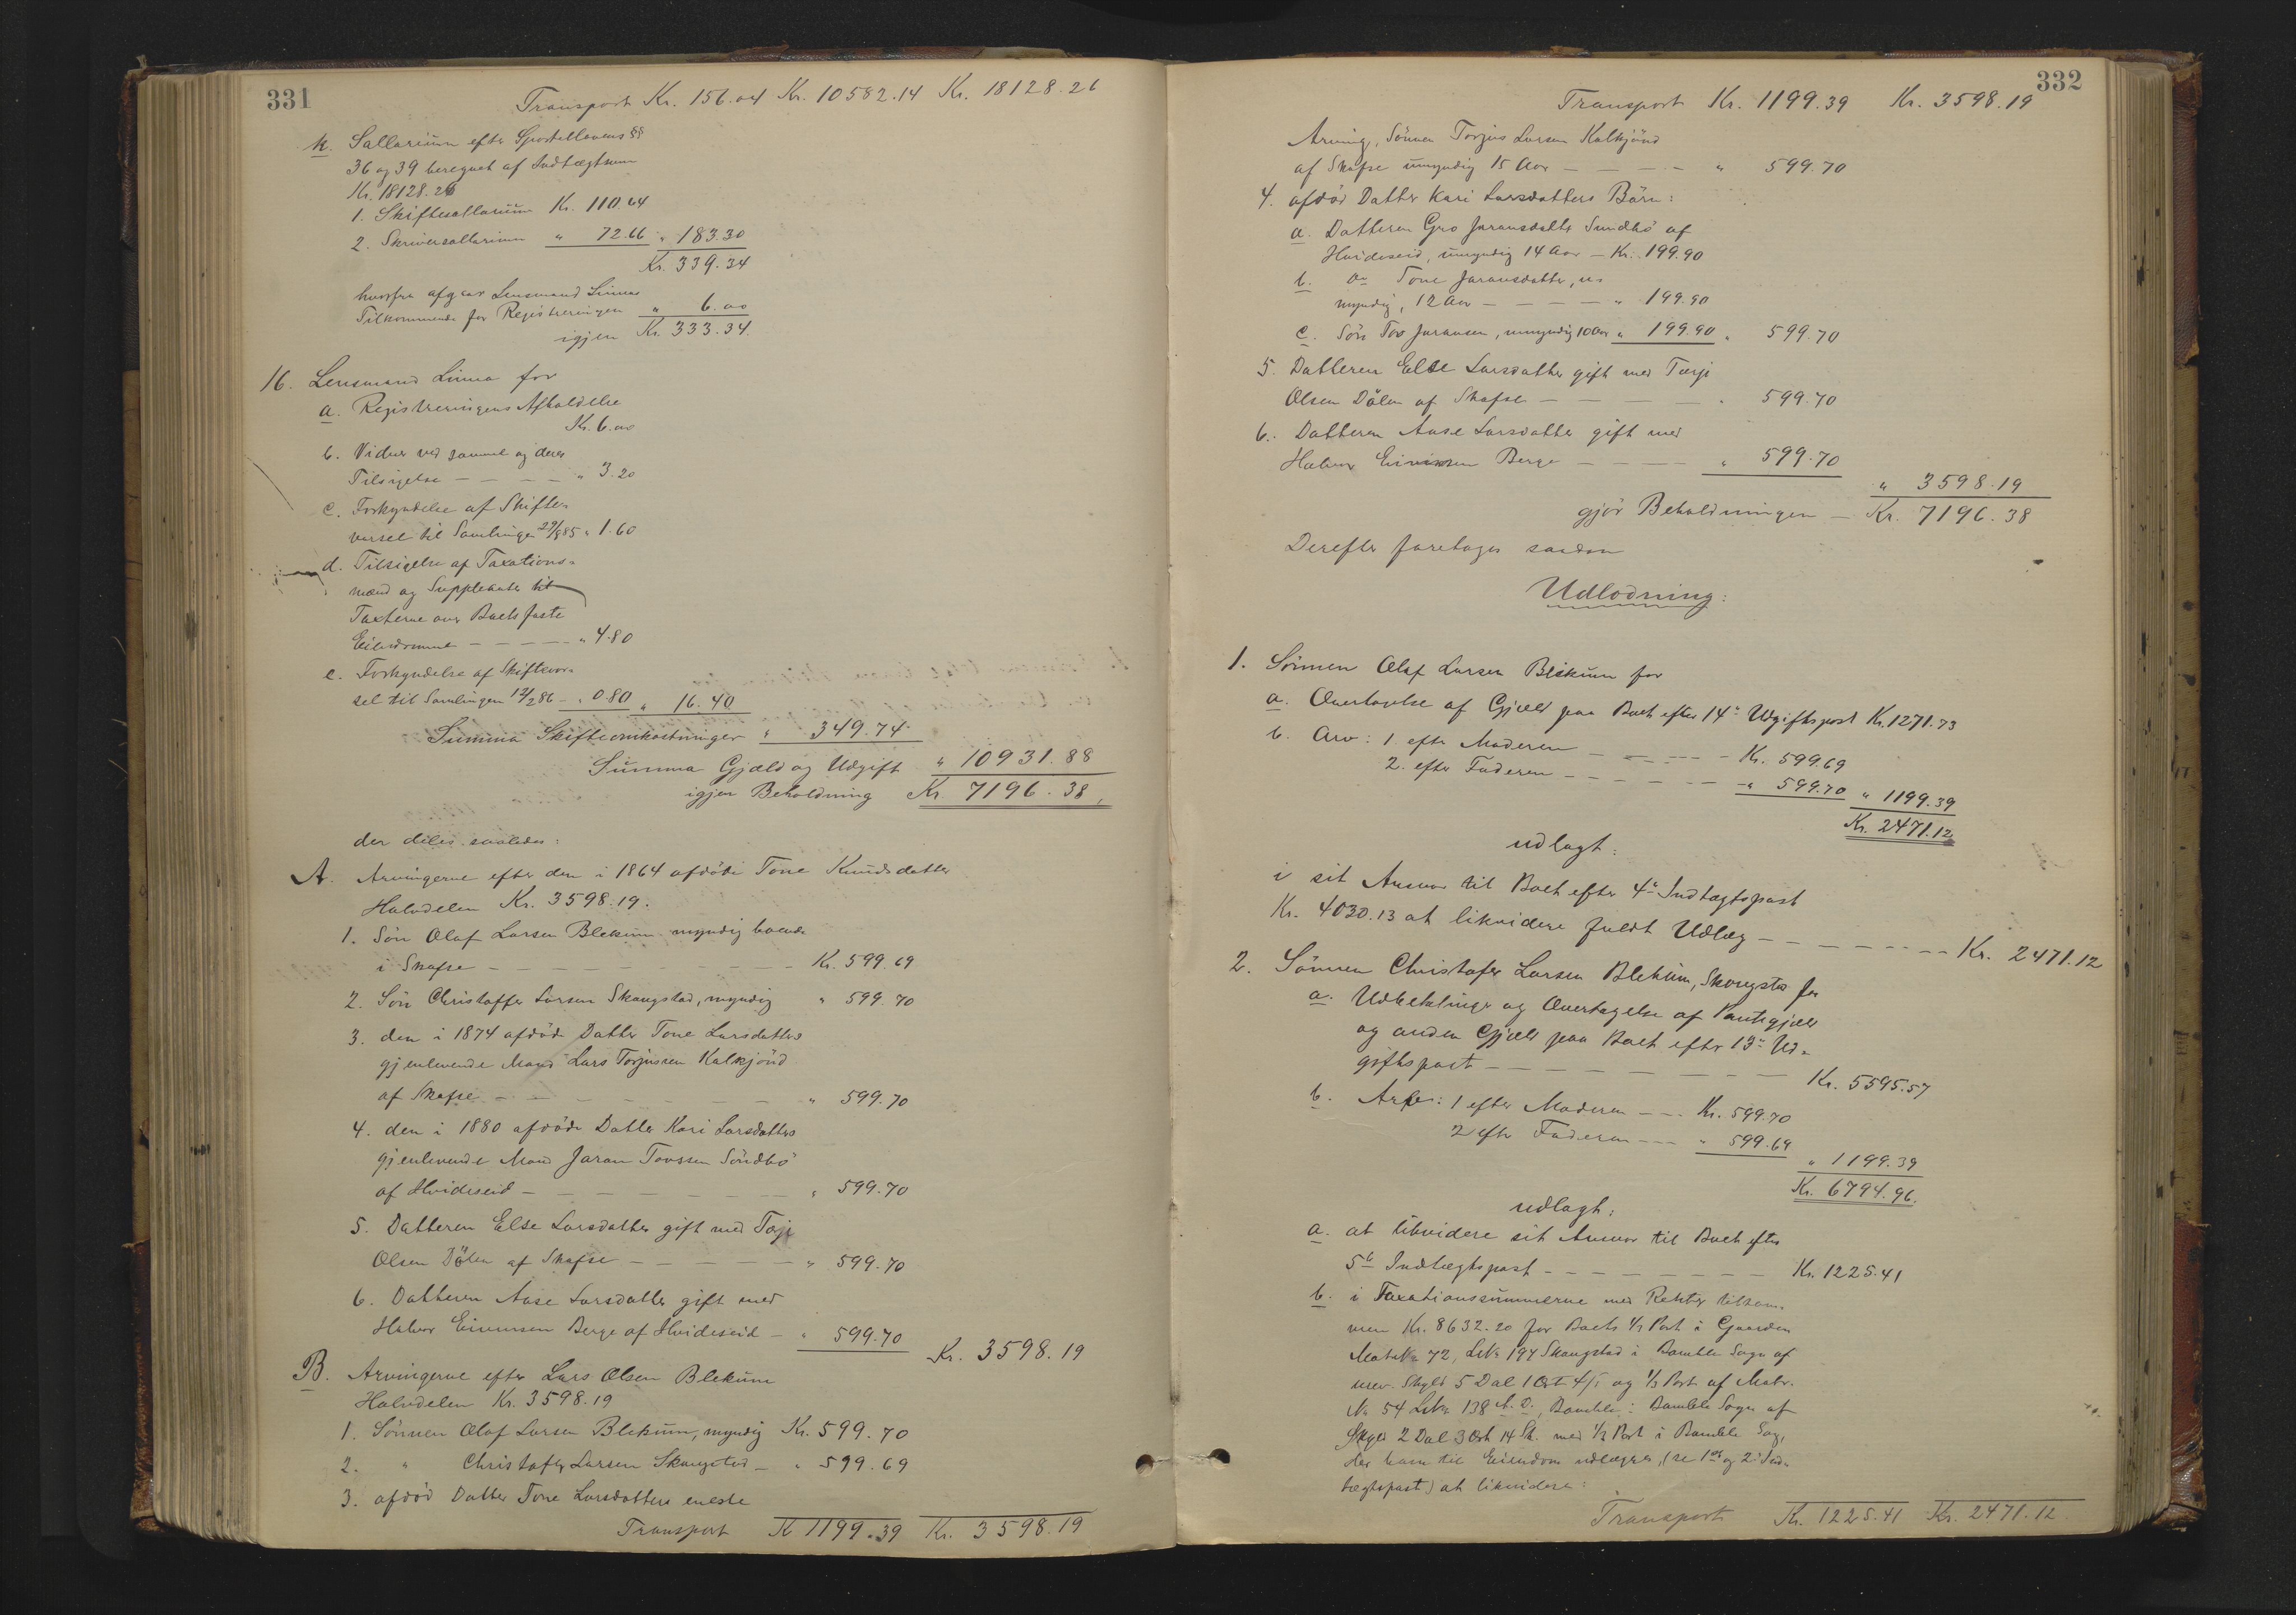 331
Transport Kr. 156.04 Kr. 10582.14 Kr. 18128.26
k. Sallarium efter Sportellovens §§
36 og 39 beregnet af Indtægtsum
Kr. 18128.26
1. Skiftesallarium Kr. 110.64
2. Skriversallarium " 72.66 " 183.30
Kr. 339.34
hvorfra afgaar Lensmand Linnas
Tilkommende for Registreringen " 6.00
igjen Kr. 333.34.
16. Lensmand Linna for
a. Registreringens Afholdelse
Kr. 6.00
b. Vidner ved samme og deres
Tilsigelse — — — — " 3.20
c. Forkyndelse af Skifte-
varsel til Samlingen 29/8 85 " 1.60
d. Tilsigelse af Taxations-
mænd og Suppleanter til
Taxterne over Boets faste
Eiendomme — — — — " 4.80
e. Forkyndelse af Skiftevar-
sel til Samlingen 12/2 86 — " 0.80 " 16.40
Summa Skifteomkostninger " 349.74
Summa Gjæld og Udgift " 10931.88
igjen Beholdning Kr. 7196.38,
der deles saaledes:
A. Arvingerne efter den i 1864 afdøde Tone Knudsdatter
Halvdelen Kr. 3598.19.
1. Søn Olaf Larsen Blekum myndig boende
i Skafse — — — — — — Kr. 599.69
2. Søn Christoffer Larsen Skaugstad, myndig " 599.70
3. den i 1874 afdøde Datter Tone Larsdatters
gjenlevende Mand Lars Torjussen Kalkjønd
af Skafse — — — — — — " 599.70
4. den i 1880 afdøde Datter Kari Larsdatters
gjenlevende Mand Jaran Tovssen Sundbø
af Hvideseid — — — — — — " 599.70
5. Datteren Else Larsdatter gift med Tarje
Olsen Dölen af Skafse — — — — — " 599.70
6. Datteren Aase Larsdatter gift med
Halvor Eivensen Berge af Hvideseid — " 599.70 Kr. 3598.19
B. Arvingerne efter Lars Olsen Blekum
Halvdelen Kr. 3598.19
1. Sönnen Olaf Larsen Blekum, myndig Kr. 599.70
2. " Christofer Larsen Skaugstad — " 599.69
3. afdöd Datter Tone Larsdatters eneste
Transport Kr 1199.39 Kr. 3598.19
332
Transport Kr. 1199.39 Kr. 3598.19
Arving, Sönnen Torjus Larsen Kalkjönd
af Skafse umyndig 15 Aar — — — — " 599.70
4. afdöd Datter Kari Larsdatters Börn:
a. Datteren Gro Jaransdatter Sundbö af
Hvideseid, umyndig 14 Aar — Kr. 199.90
b. do Tone Jaransdatter, u-
myndig, 12 Aar — — — — " 199.90
c. Sön Tov Jaransen, umyndig 10 Aar " 199.90 " 599.70
5. Datteren Else Larsdatter gift med Tarje
Olsen Dölen af Skafse — — — — " 599.70
6. Datteren Aase Larsdatter gift med
Halvor Eivensen Berge — — — — " 599.70
" 3598.19
gjör Beholdningen — Kr. 7196.38
Derefter foretages saadan
Udlodning:
1. Sönnen Olaf Larsen Blekum for
a. Overtagelse af Gjæld paa Boet efter 14de Udgiftspost Kr. 1271.73
b. Arv: 1. efter Moderen — — — — Kr. 599.69
2. efter Faderen — — — — — " 599.70 " 1199.39
Kr. 2471.12
udlagt:
i sit Ansvar til Boet efter 4de Indtægtspost
Kr. 4030.13 at likvidere fuldt Udlæg — — — — — — Kr. 2471.12
2. Sönnen Christofer Larsen Blekum, Skougstad for
a. Udbetalinger og Overtagelse af Pantegjæld
og anden Gjæld paa Boet efter 13de Ud-
giftspost — — — — — — — — Kr. 5595.57
b. Arv: 1 efter Moderen — — Kr. 599.70
2 efter Faderen — — — " 599.69
" 1199.39
Kr. 6794.96.
udlagt:
a. at likvidere sit Ansvar til Boet efter
5te Indtægtspost — — — — — — — Kr. 1225.41
b. i Taxationssummerne med Renter tilsam-
men Kr. 8632.20 for Boets 1/3 Part i Gaarden
Mat. No 72, LNo 194 Skaugstad i Bamble Sogn af
urev. Skyld 5 Dal 1 Ort 4 ß og 1/3 Part af Matr.
No 54 LNo 138 Bamble i Bamble Sogn af
Skyld 2 Dal 3 Ort 14 Sk. med 1/3 Part i Bamble Sag,
der ham til Eiendom udlægges, (se 1ste og 2den Ind-
tægtspost) at likvidere:
Transport Kr. 1225.41 Kr. 2471.12